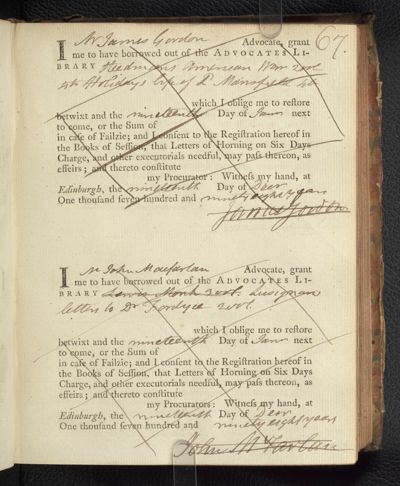 67.
I Mr James Gordon Advocate, grant
me to have borrowed out of the ADVOCATES LI-
BRARY Stedmans American War 2 vols
4to Holidays life of L Mansfield 4to
which I oblige me to restore
betwixt and the nineteenth Day of Janr next
to come, or the Sum of
in case of Failzie; and I consent to the Registration hereof in
the Books of Session, that Letters of Horning on Six Days
Charge, and other executorials needful, may pass thereon, as
effeirs; and thereto constitute
my Procurator: Witness my hand, at
Edinburgh, the nineteenth Day of Decr
One thousand seven hundred and ninety eight years
James Gordon
I Mr John Macfarlan Advocate, grant
me to have borrowed out of the ADVOCATES LI-
BRARY Lewis's Monk 2 vols. Lusignan
letters to Dr Fordyce 2 vols.
which I oblige me to restore
betwixt and the nineteenth Day of Janr next
to come, or the Sum of
in case of Failzie; and I consent to the Registration hereof in
the Books of Session, that Letters of Horning on Six Days
Charge, and other executorials needful, may pass thereon, as
effeirs; and thereto constitute
my Procurators: Witness my hand, at
Edinburgh, the nineteenth Day of Decr
One thousand seven hundred and ninety eight years
John McFarlan